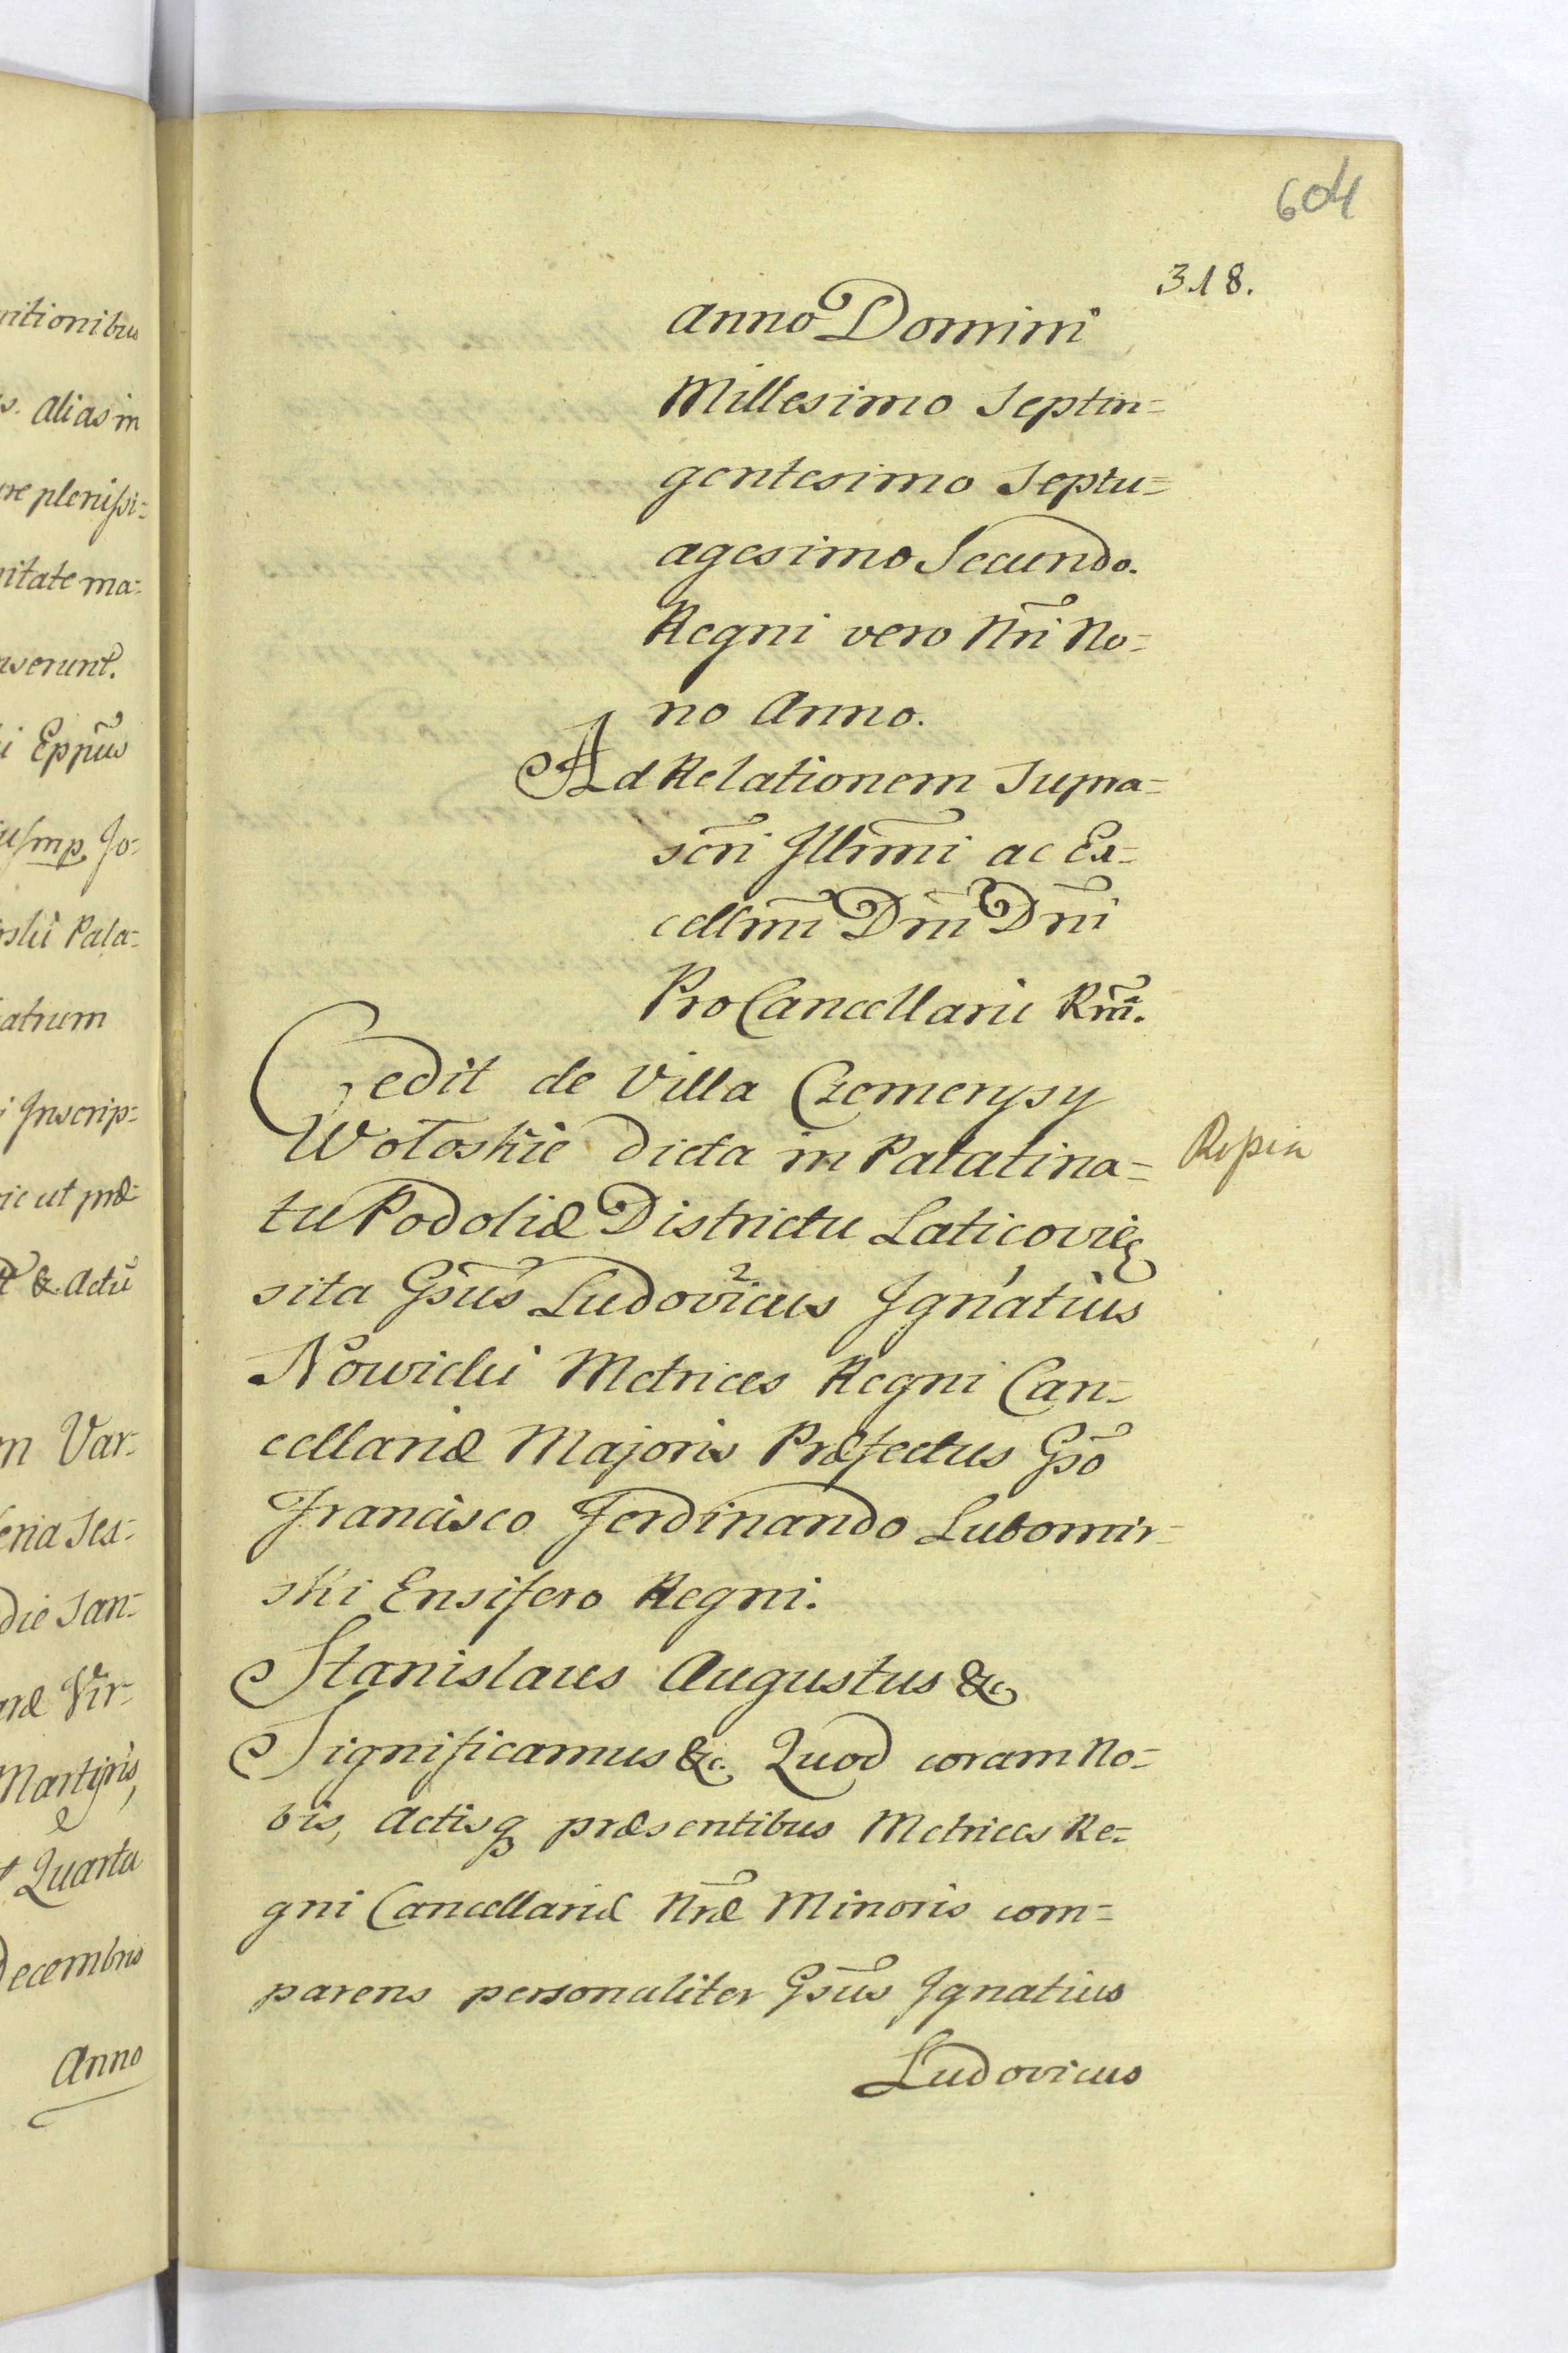 604
318.
Anno Domini
Millesimo Septin=
gentesimo Septu=
agesimo Secundo.
Regni vero Nri No=
no Anno.
Ad Relationem Supra=
scri Illrmi ac Ex=
cellmi Dni Dni
ProCancellarii Rni.
Cedit de Villa Czemerysy
Wołoskie dicta in Palatina=
tu Podoliæ Districtu Laticovię
sita Gsus Ludovicus Ignatius
Nowicki Metrices Regni Can=
cellariæ Majoris Præfectus Gso
Francisco Ferdinando Lubomir=
ski Ensifero Regni.
Stanislaus Augustus &c
Significamus &c. Quod coram No=
bis, Actisq præsentibus Metrices Re=
gni Cancellariæ Nræ Minoris com=
parens personaliter Gsus Ignatius
Ludovicus
nitionibus
s. Alias in
re plenissi=
nitate ma=
serunt.
i Eppus
Jo=
Pala=
atrum
i Inscrip=
ic ut præ=
& Actu
m Var=
eria Sex=
die San=
Vir=
Martyris,
Quarta
Decembris
Anno